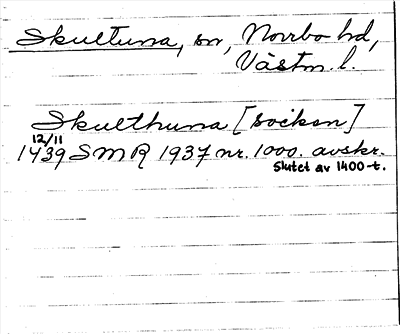 Skultuna, sn, Norrbo hd,
Västm. l.
Skulthuna [socken]
12/11
1439 SMR 1937 nr. 1000. avskr.
Slutet av 1400-t.